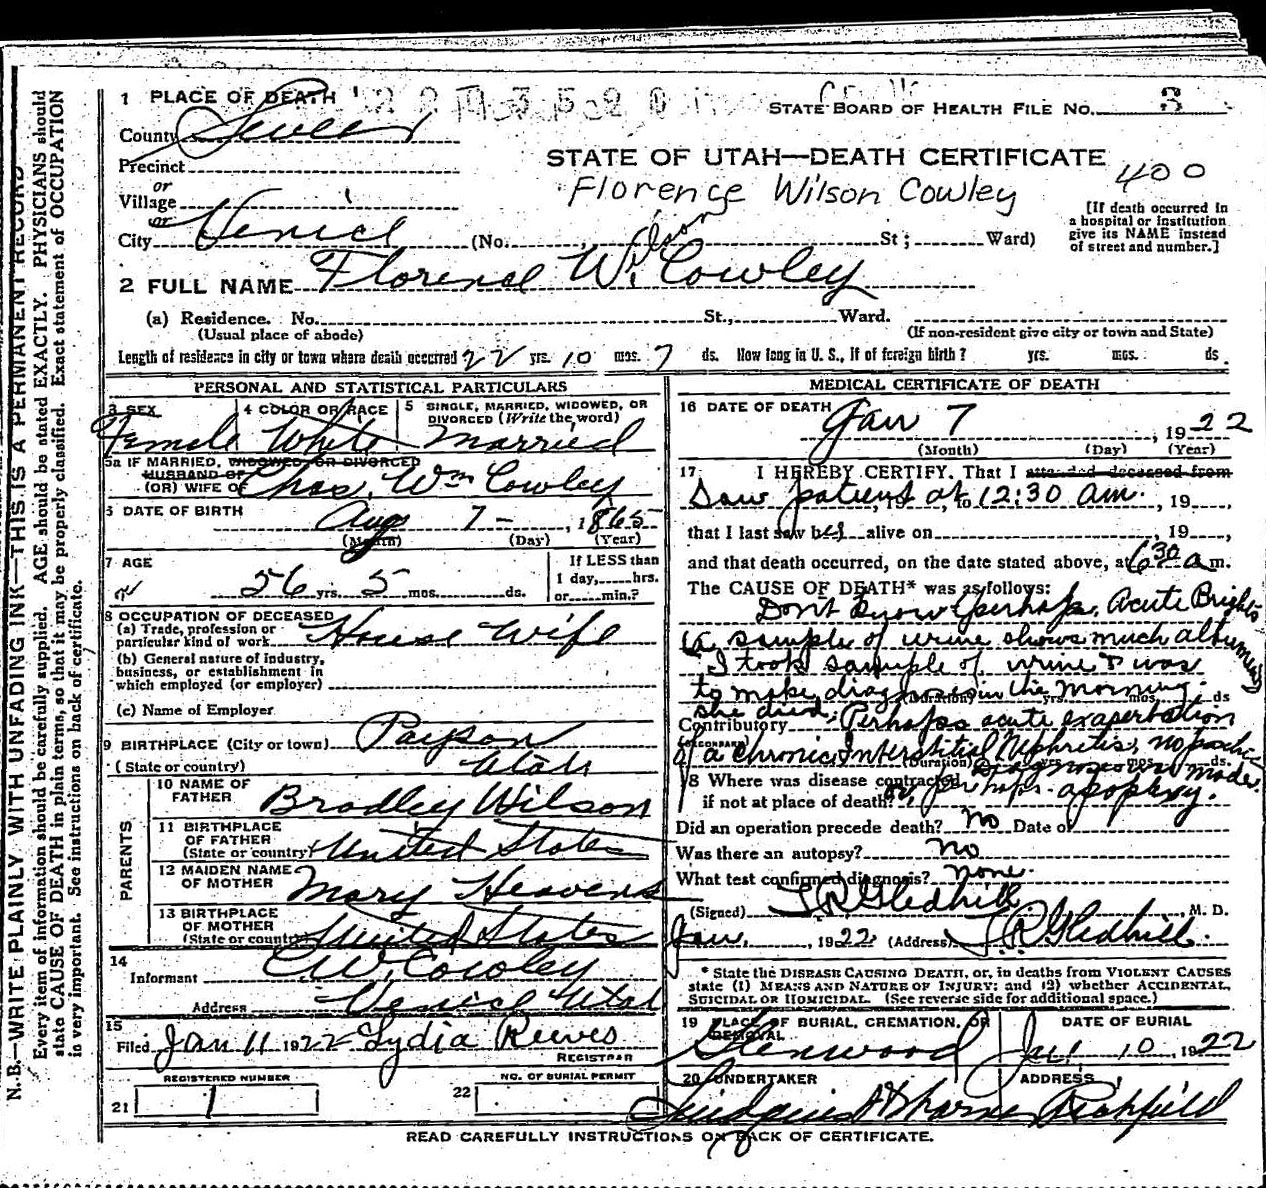 1 PLACE OF DEATH
STATE BOARD OF HEALTH FILE No. 3
County Sevier
Precinct
or
Village
or
City Venice (No. St; Ward)
STATE OF UTAH—DEATH CERTIFICATE
Florence Wilson Cowley
400
[If death occurred in
a hospital or institution
give its NAME instead
of street and number.]
2 FULL NAME Florence Wilson Cowley
(a) Residence. No. St., Ward.
(Usual place of abode) (If non-resident give city or town and State)
Length of residence in city or town where death occurred 22 yrs. 10 mos. 7 ds. How long in U. S., if of foreign birth? yrs. mos. ds.
PERSONAL AND STATISTICAL PARTICULARS
3 SEX
Female
4 COLOR OR RACE
White
5 SINGLE, MARRIED, WIDOWED, OR
DIVORCED (Write the word)
Married
5a IF MARRIED, WIDOWED, OR DIVORCED
HUSBAND OF
(OR) WIFE OF Chas. Wm Cowley
6 DATE OF BIRTH Aug 7 - , 1865
(Month) (Day) (Year)
7 AGE
56 yrs. 5 mos. ds.
If LESS than
1 day, hrs.
or min.?
8 OCCUPATION OF DECEASED
(a) Trade, profession or
particular kind of work House Wife
(b) General nature of industry,
business, or establishment in
which employed (or employer)
(c) Name of Employer
9 BIRTHPLACE (City or town) Payson
(State or country) Utah
PARENTS
10 NAME OF
FATHER Bradley Wilson
11 BIRTHPLACE
OF FATHER
(State or country) United States
12 MAIDEN NAME
OF MOTHER Mary Heavens
13 BIRTHPLACE
OF MOTHER
(State or country) United States
14
Informant C W. Cowley
Address Venice Utah
15
Filed Jan 11 1922 Lydia Reeves
REGISTRAR
REGISTERED NUMBER
21 1
NO. OF BURIAL PERMIT
22
MEDICAL CERTIFICATE OF DEATH
16 DATE OF DEATH Jan 7 , 1922
(Month) (Day) (Year)
17 I HEREBY CERTIFY. That I attended deceased from
Saw patient at 12:30 am. , 19 ,
that I last saw her alive on , 19 ,
and that death occurred, on the date stated above, at 6 30 a m.
The CAUSE OF DEATH* was as follows:
Dont know perhaps Acute Brights
(a sample of urine shows much albumen)
I took sample of urine & was
to make diagnosis in the morning.
(Duration) yrs. mos. ds
she died.
Contributory Perhaps acute exaserbation
(SECONDARY)
of a chronic Interstitial Nephritis, no
(Duration) yrs. mos. ds.
diagnosis made
18 Where was disease contracted
if not at place of death? or perhaps apoplexy.
Did an operation precede death? no Date of
Was there an autopsy? no
What test confirmed diagnosis? none.
(Signed) T R Gledhill , M. D.
Jan. , 1922 (Address) T. R. Gledhill.
* State the DISEASE CAUSING DEATH, or, in deaths from VIOLENT CAUSES
state (1) MEANS AND NATURE OF INJURY; and (2) whether ACCIDENTAL,
SUICIDAL OR HOMICIDAL. (See reverse side for additional space.)
19 PLACE OF BURIAL, CREMATION, OR
REMOVAL
Glenwood
DATE OF BURIAL
Jan 10, 1922
20 UNDERTAKER
ADDRESS
Richfield
READ CAREFULLY INSTRUCTIONS ON BACK OF CERTIFICATE.
N. B.—WRITE PLAINLY WITH UNFADING INK—THIS IS A PERMANENT RECORD
Every item of information should be carefully supplied. AGE should be stated EXACTLY. PHYSICIANS should
state CAUSE OF DEATH in plain terms, so that it may be properly classified. Exact statement of OCCUPATION
is very important. See instructions on back of certificate.